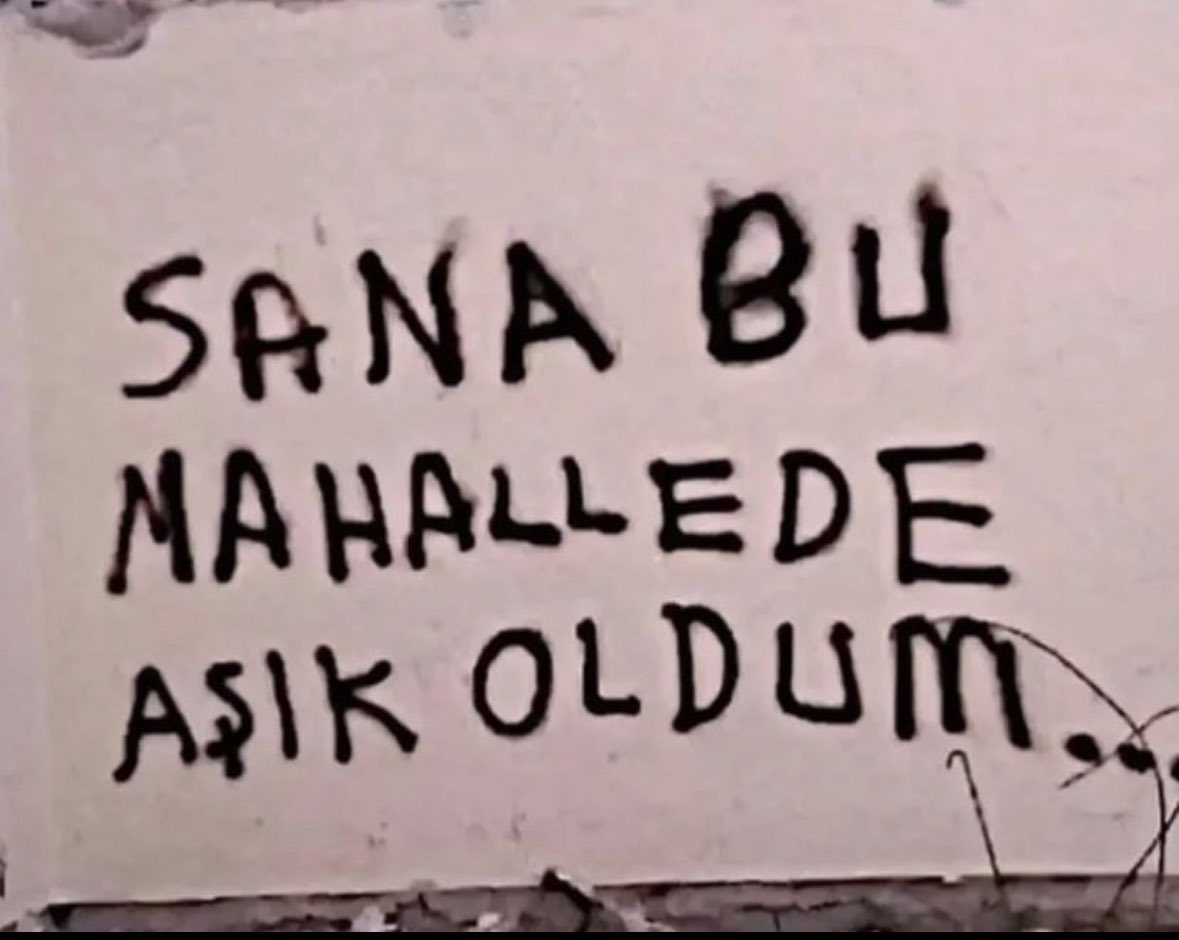 SANA BU
MAHALLEDE
AŞIK OLDUM...